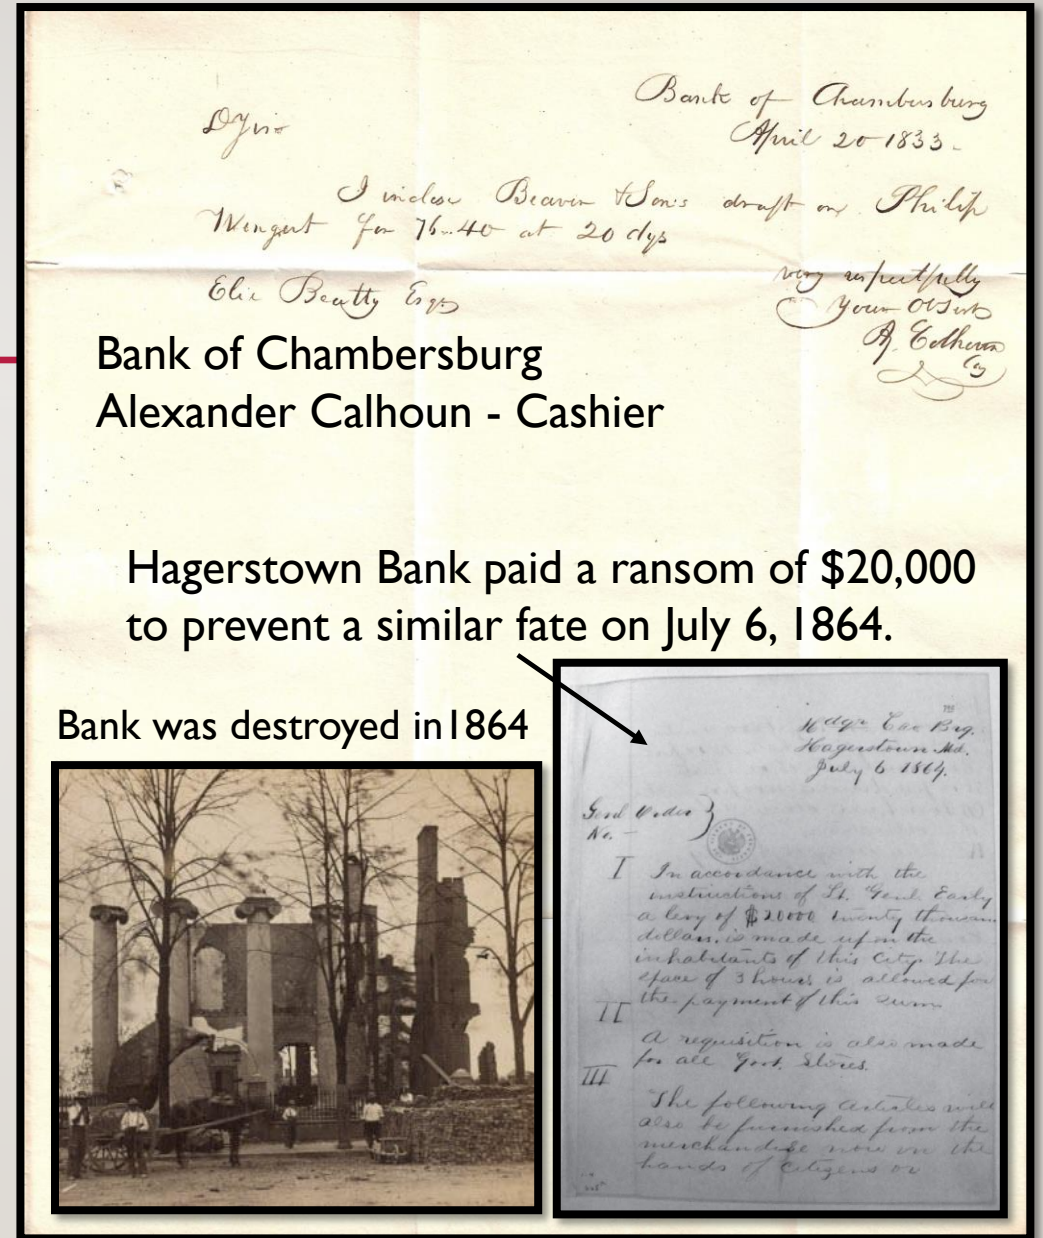 Bank of Chambersburg
April 20 1833.
D Sir
I inclose Beaver & Son's draft on Philip
Wingert for 76.40 at 20 dys
very respectfully
Your Obt Svt
Elie Beatty Esqr
A. Colhoun
Bank of Chambersburg
Alexander Calhoun - Cashier
Hagerstown Bank paid a ransom of $20,000
to prevent a similar fate on July 6, 1864.
Bank was destroyed in1864
Hdqrs Cav Brig.
Hagerstown Md.
July 6 1864.
Genl Order
No. -
I In accordance with the
instructions of Lt. Genl Early
a levy of $20000 twenty thousan
dollars, is made upon the
inhabitants of this City. The
space of 3 hours is allowed for
the payment of this sum
II
A requisition is also made
for all Govt. Stores.
III
The following articles will
also be furnished from the
merchandise now in the
hands of citizens or